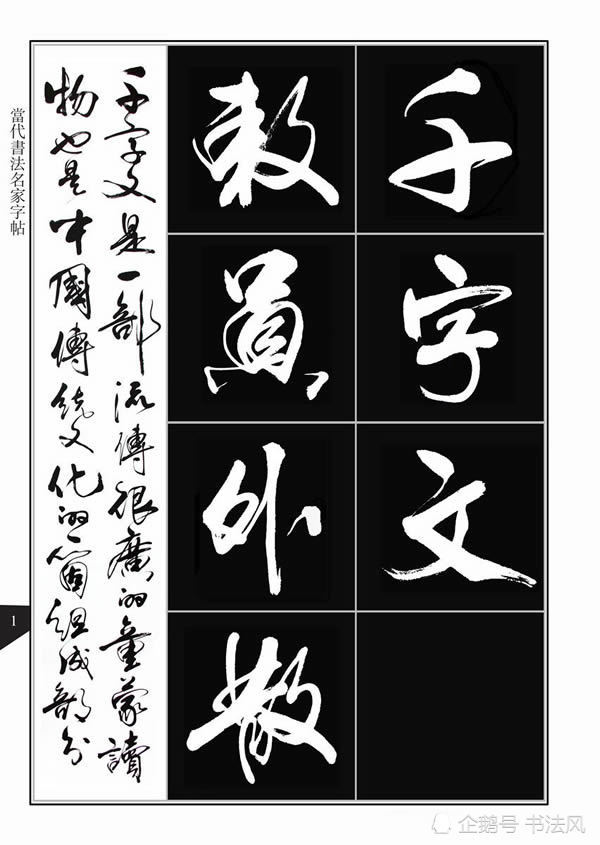 千字文
敕員外散
千字文是一部流傳很廣的童蒙讀
物也是中國傳統文化的一箇組成部分
當代書法名家字帖
1
企鹅号 书法风